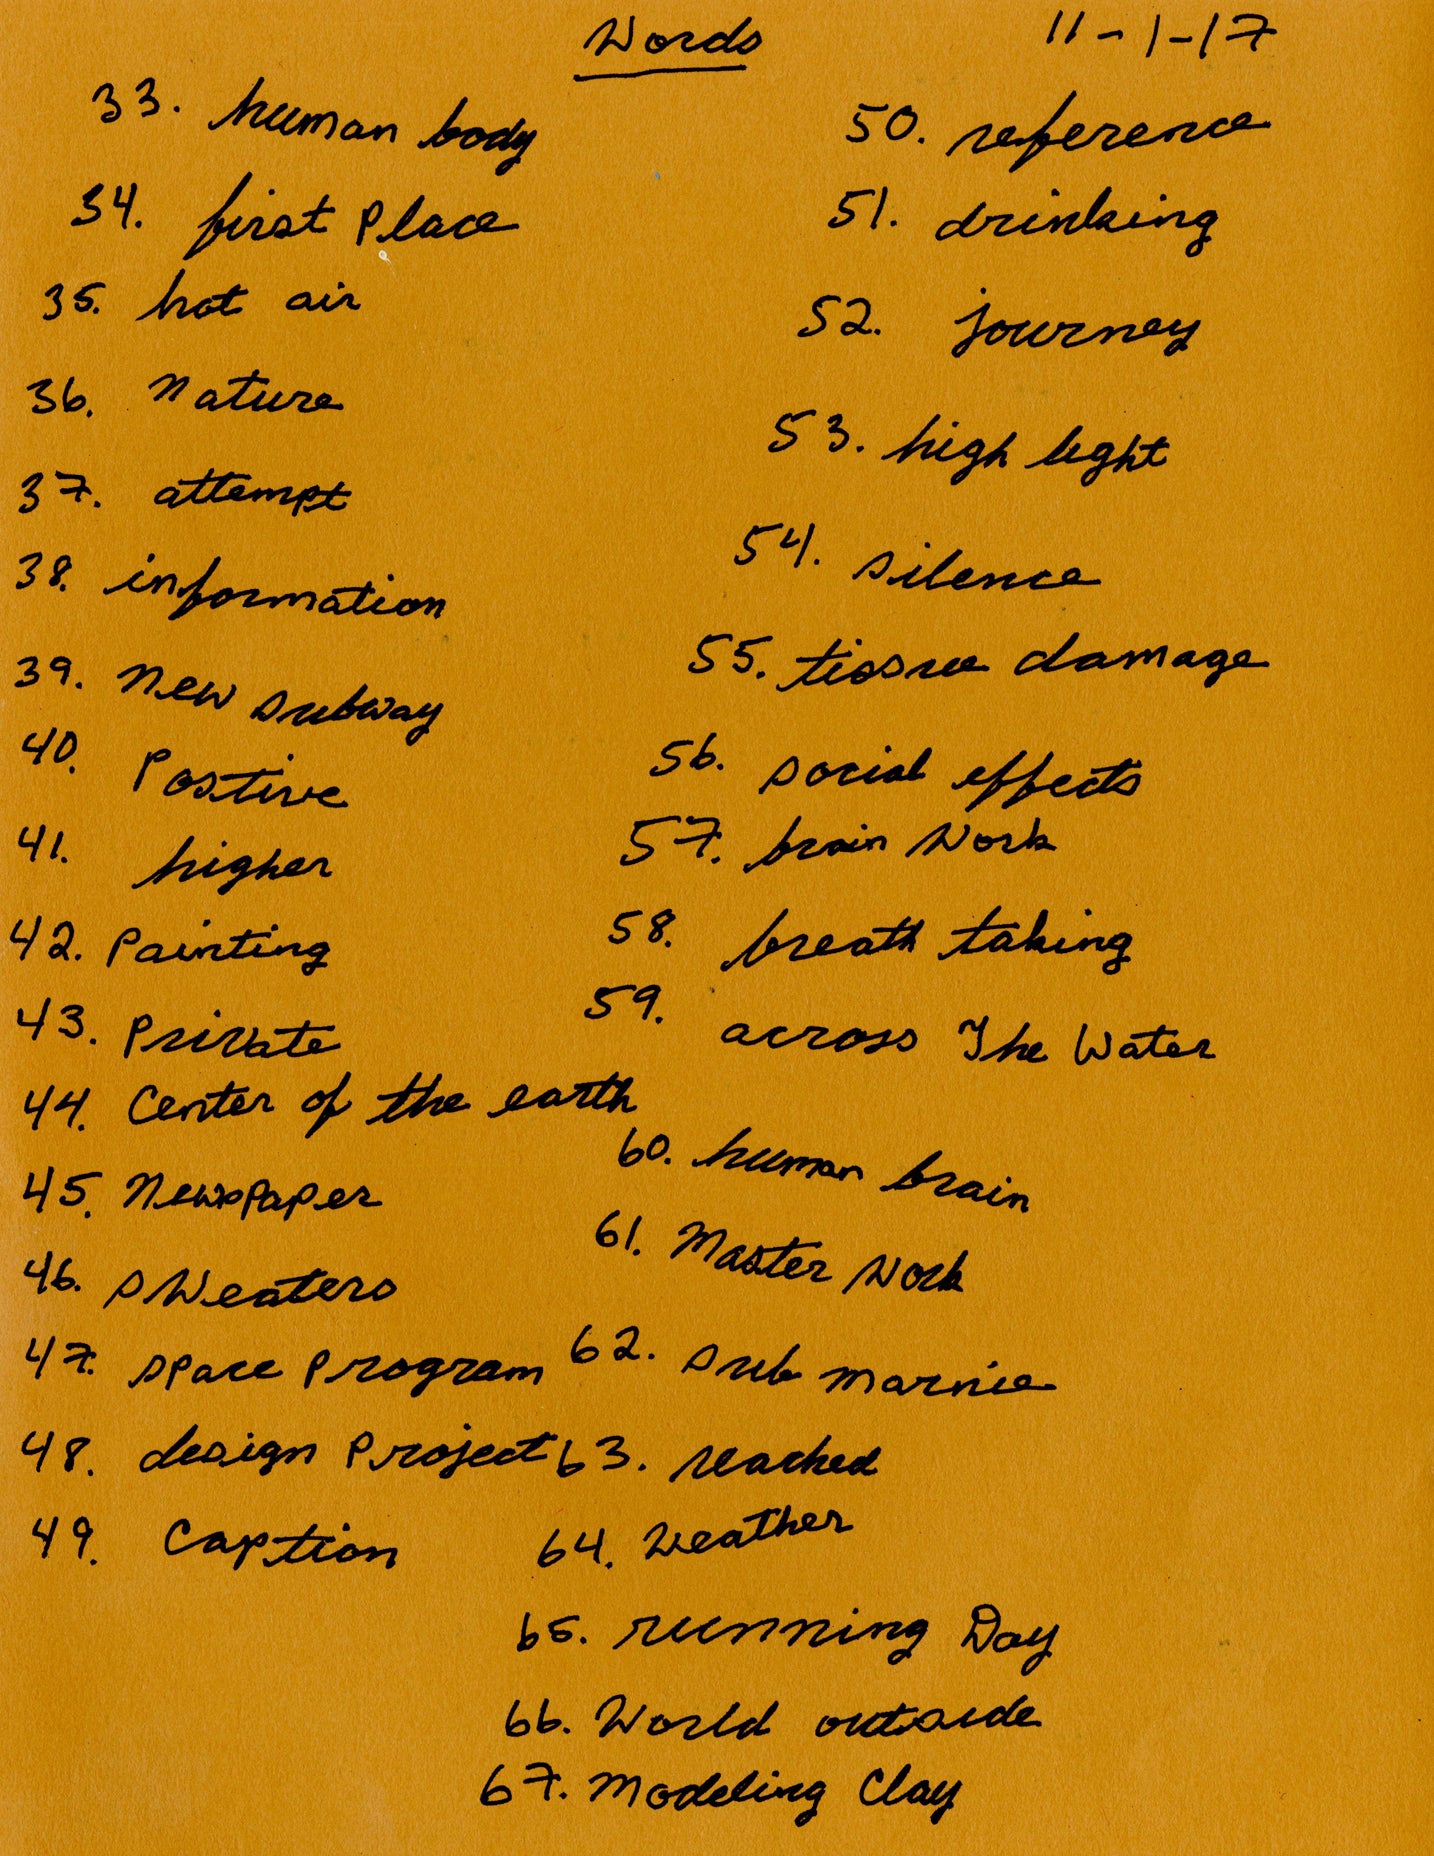 Words
11-1-17
33. human body
34. first Place
35. hot air
36. Nature
37. attempt
38. information
39. New subway
40. Postive
41. higher
42. Painting
43. Private
44. Center of the earth
45. Newspaper
46. sweaters
47. space Program
48. design Project
49. Caption
50. reference
51. drinking
52. journey
53. high light
54. silence
55. tissue damage
56. social effects
57. brain work
58. breath taking
59. across The Water
60. human brain
61. Master work
62. sub marnie
63. reached
64. weather
65. running Day
66. World outside
67. Modeling Clay